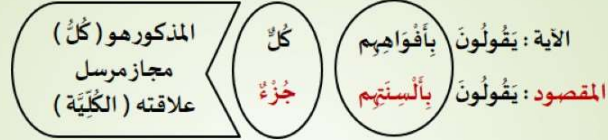 الآية : يَقُولُونَ بِأَفْوَاهِهِم كُلٌّ
المقصود : يَقُولُونَ بِأَلْسِنَتِهِم جُزْءٌ
المذكور هو ( كُلُّ )
مجاز مرسل
علاقته ( الكُلِّيَّة )